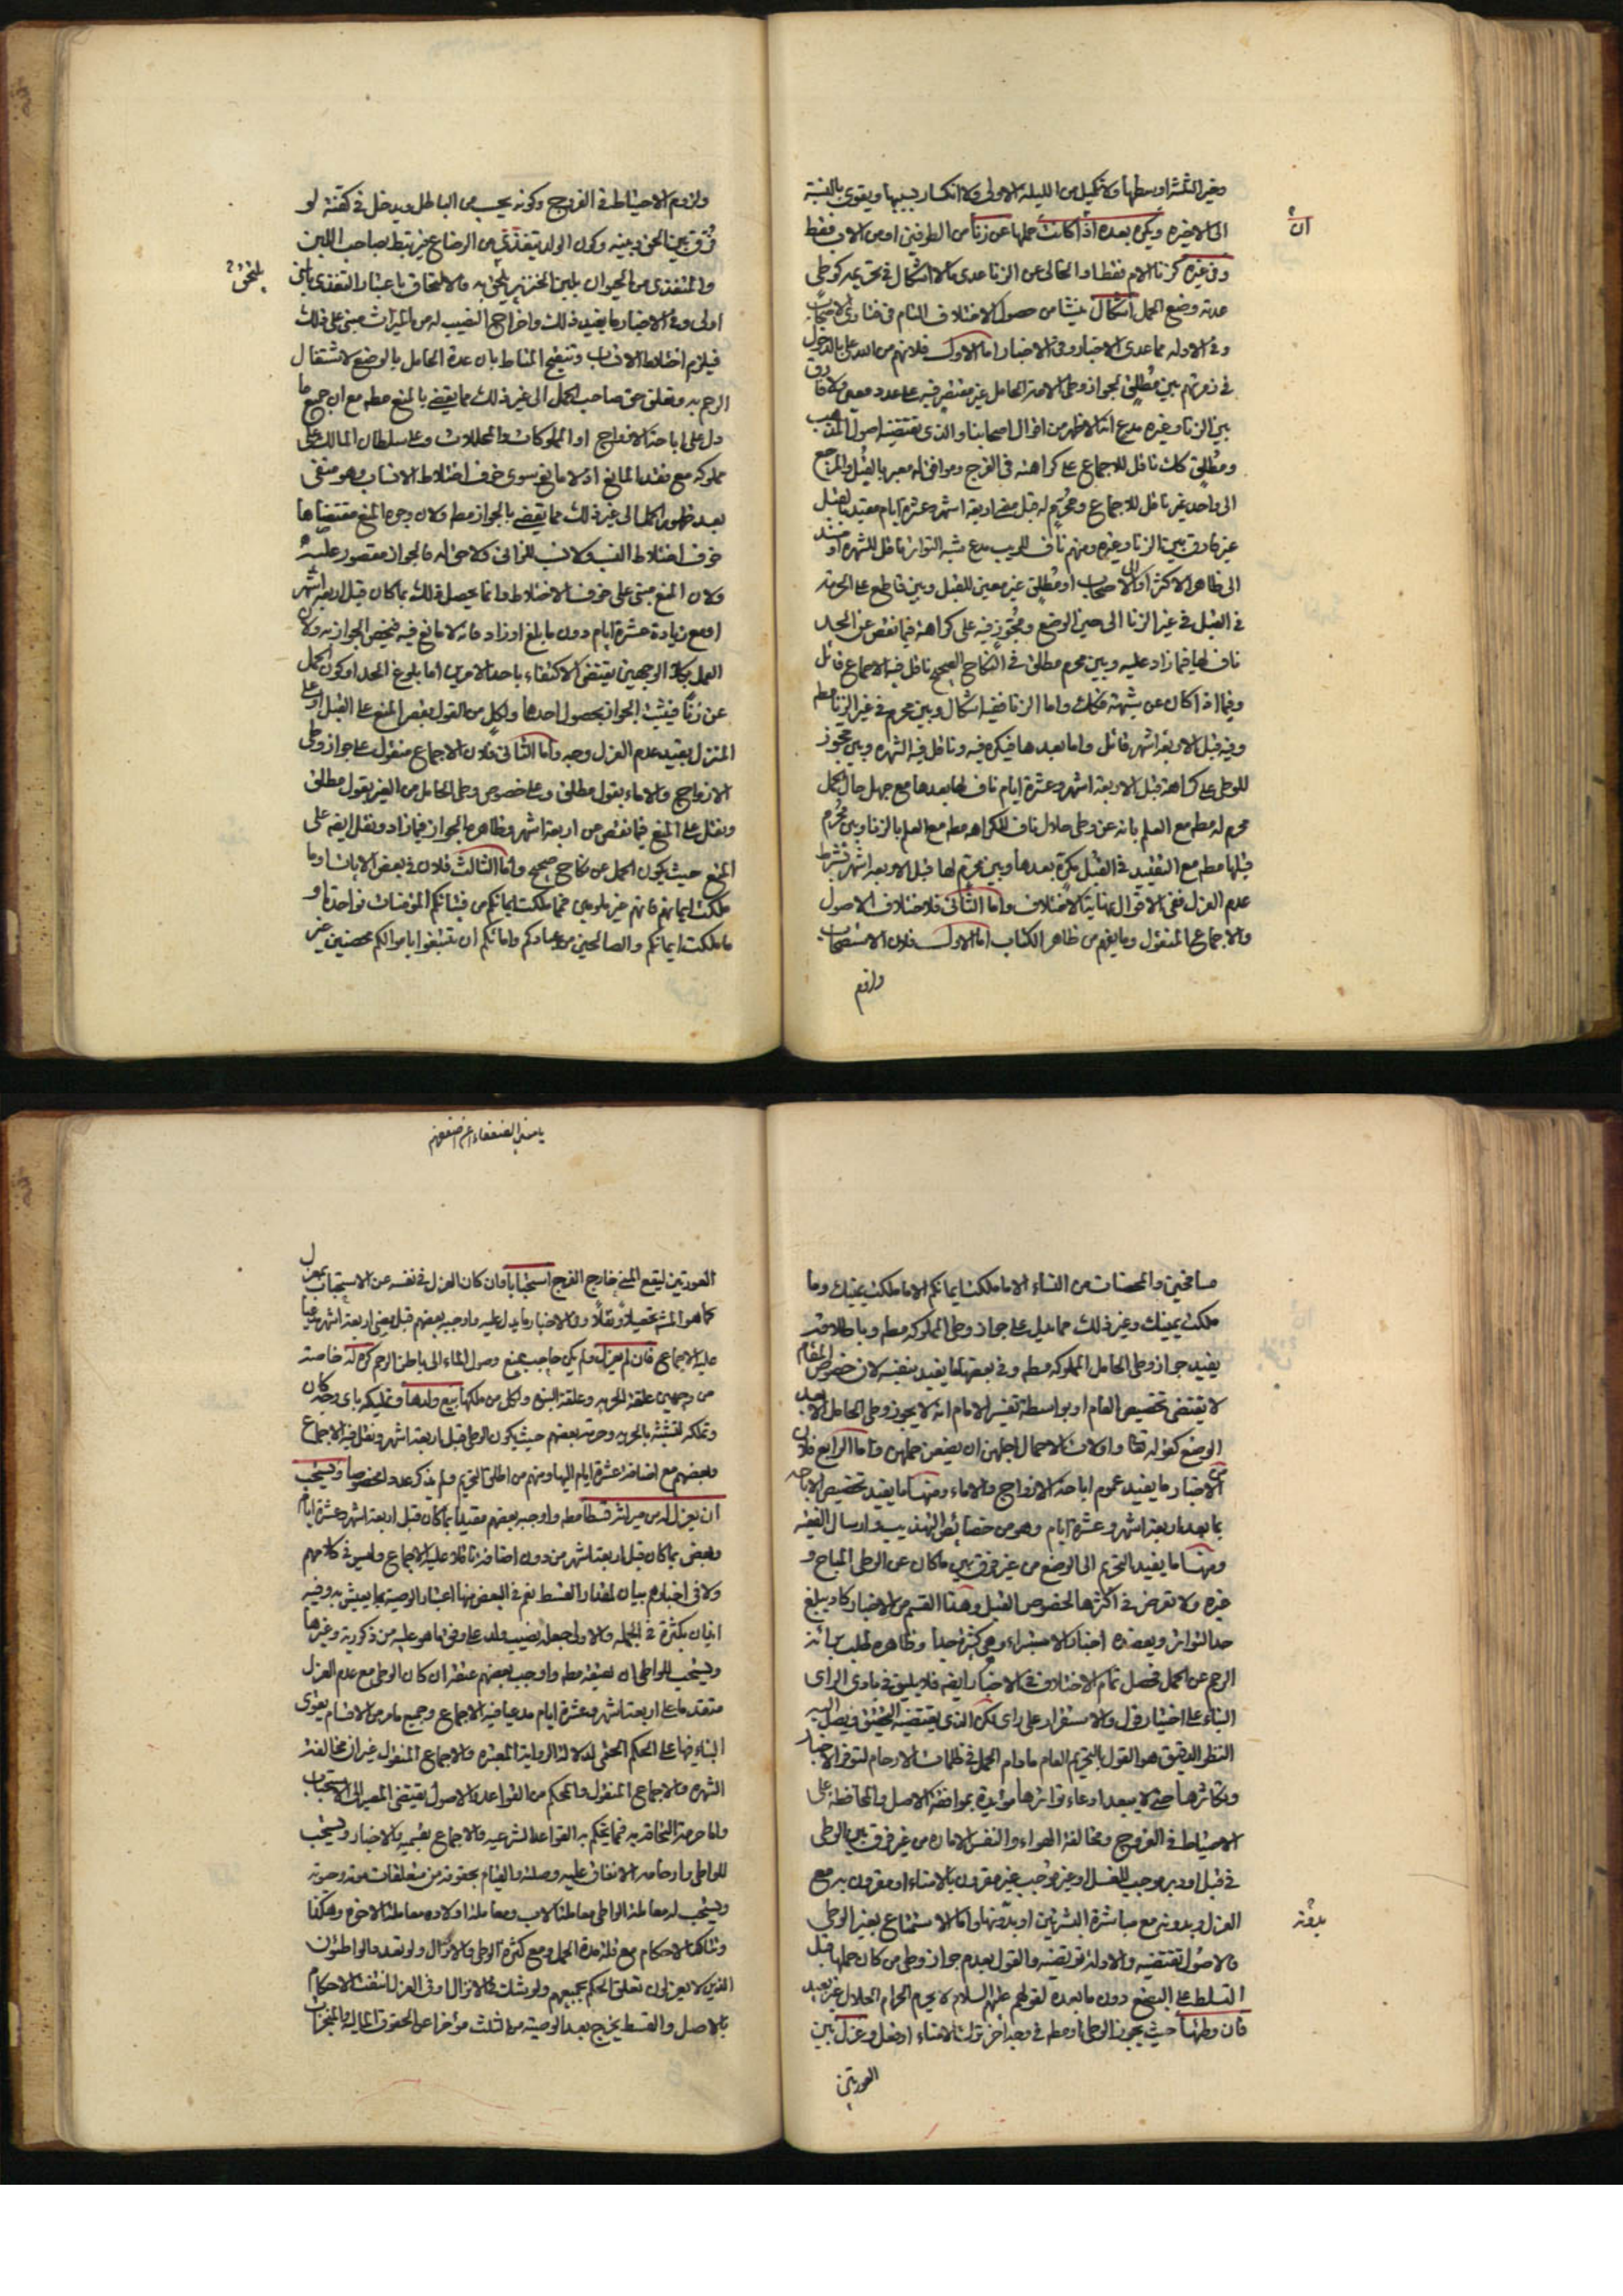 وخير الثلثة اوسطها ولا تكميل من الليلة الاولى ولا انكسار بسببها ويقوى بالنسبة
الى الاخيره ويكره بعده اذا كانت حملها عن زنا من الطرفين او من الاب فقط
ان
وفي غيره كزنا الام فقط او الخالى عن الزنا عدى ما لا اشكال في تحريمه كوطي
عدته وضع الحمل اشكال ينشا من حصول الاختلاف التام في فتاوى الاصحاب
وفي الادلة مما عدى الاخبار وفي الاخبار اما الاول فلانهم من
في زمرتهم بين مُطلق لجواز وطى الامة الحامل غير مقتصر فيه على عدد معين ولا فارق
بين الزنا وغيره مدع انه الاظهر من اقوال اصحابنا والذى تقتضيه اصول المذهب
ومُطلق كك ناقل للاجماع على كراهته في الفرج وموافق له معبر بالقبُل والمرجع
الى واحد غير ناقل للاجماع ومُحرّم له قبل مضى اربعة اشهر وعشرة ايام مقيد بالقبل
غير فارق بين الزنا وغيره ومنهم ناف للريب مدع شبه التواتر ناقل للشهرة او مسند
الى ظاهر الاكثر او الى الاصحاب او مُطلق غير معين للقبل وبين قاطع على الحرمة
في القبل في غير الزنا الى حين الوضع ومُجوّز فيه على كراهة فيما نقص عن الحد
ناف لها فيما زاد عليه وبين محرم مطلق في النكاح الصحيح ناقل فيه الاجماع قائل
وفيما اذا كان عن شبهة فكك واما الزنا ففيه اشكال وبين محرم في غير الزنا مطم
وفيه قبل الاربعة اشهر قائل واما بعدها فيكره فيه وناقل فيه الشهرة وبين مجوز
للوطى على كراهة قبل الاربعة اشهر وعشرة ايام ناف لها بعدها مع جهل حال الحمل
محرم له مطم مع العلم بانه عن وطى حلال ناف للكراهه مطم مع العلم بالزنا وبين مُحرّم
قبلها مطم مع التقييد في القبل مكره بعدها وبين محرم لها قبل الاربعة اشهر بشرط
عدم العزل ففي الاقوال نهاية الاختلاف واما الثانى فلاختلاف الاصول
والاجماع المنقول وما يفهم من ظاهر الكتاب اما الاول فلان الاستصحاب
ولزوم
ولزوم الاحتياط في الفروج وكونه يجب من الباطل ويدخل في كفته لو
فُرّق بين الحق وبينه وكون الولد يتغذّى من الرضاع غير مرتبط بصاحب اللبن
والمتغذى من الحيوان بلبن الخنزير يلحق به فالالتحاق باعتبار التغذى
اولى وفي الاخبار ما يفيد ذلك واخراج النصيب له من الميراث مبنى على ذلك
فيلزم اختلاط الانساب وتنقيح المناط بان عدة الحامل بالوضع لاشتغال
الرحم به وتعلق حق صاحب الحمل الى غير ذلك مما يقضى بالمنع مطم مع ان جميع ما
دل على اباحة الازواج او المملوكات والمحللات وعلى سلطان المالك على
مملوكه مع فقد المانع اذ لا مانع سوى خوف اختلاط الانساب وهو منفى
بعد ظهور الحمل الى غير ذلك مما يقضى بالجواز مطم ولان وجوه المنع مقتضاها
خوف اختلاط النسب ولا نسب للزانى ولا حق له فالجواز مقصور عليه
ولان المنع مبنى على خوف الاختلاط وانما يحصل ذلك بما كان قبل اربعة اشهر
او مع زيادة عشرة ايام دون ما بلغ او زاد فانه لا مانع فيه فيختص الجواز به ولان
العمل بكلا الوجهين يقتضى الاكتفاء باحد الامرين اما بلوغ الحد او كون الحمل
عن زنا فيثبت الجواز بحصول احدهما ولكل من القول بقصر المنع على القبل او على
المنزل بقيد عدم العزل وجه واما الثانى فلان الاجماع منقول على جواز وطى
الازواج والاماء بقول مطلق وعلى خصوص وطى الحامل من الغير بقول مطلق
ونقل على المنع فيما نقص من اربعة اشهر وظاهره الجواز فيما زاد ونقل ايضا على
المنع حيث يكون الحمل عن نكاح صحيح واما الثالث فلان في بعض الايات او ما
ملكت ايمانهم فانهم غير ملومين فمما ملكت ايمانكم من فتياتكم المؤمنات فواحدة او
ما ملكت ايمانكم والصالحين من عبادكم وامائكم ان تبتغوا باموالكم محصنين غير
يا
مسافحين والمحصنات من النساء الا ما ملكت ايمانكم الا ما ملكت يمينك وما
ملكت يمينك وغير ذلك مما يدل على جواز وطى المملوكه مطم وباطلاقه
يفيد جواز وطى الحامل المملوكه مطم وفي بعضها ما يفيد بنفسه لان خصوص المقام
لا يقتضى تخصيص العام او بواسطة تفسير الامام انه لا يجوز وطى الحامل الا بعد
الوضع كقوله تعالى واولات الاحمال اجلهن ان يضعن حملهن واما الرابع فلان
من الاخبار ما يفيد عموم اباحة الازواج والاماء ومنها ما يفيد تخصيص الاباحه
بما بعد اربعة اشهر وعشرة ايام وهو من خصائص التهذيب وارسال الفقيه
ومنها ما يفيد التحريم الى الوضع من غير فرق بين ما كان عن الوطى المباح و
غيره ولا تعرض في اكثرها لخصوص القبل وهذا القسم من الاخبار كاد يبلغ
حد التواتر ويعضده اخبار الاستبراء وهى كثيرة جدا وظاهره طلب برائة
الرحم عن الحمل فحصل تمام الاختلاف في الاخبار ايضه فلا يليق في بادى الراى
البناء على اختيار قول والاستقرار على راى لكن الذى يقتضيه التحقيق ويصل اليه
النظر الدقيق هو القول بالتحريم العام ما دام الحمل في ظلمات الارحام لتوفر الاخبار
وتكاثرها حتى لا يبعد ادعاء تواترها مؤيدة بموافقة الاصل والمحافظة على
الاحتياط في الفروج ومخالفة الهواء والنفس الاماره من غير فرق بين الوطى
في قبل او دبر موجب للغسل او غير موجب غير مقرون بالامناء او مقرون به مع
العزل وبدونه مع مباشرة البشرتين او بدونها واما الاستمتاع بغير الوطى
بدونه
فالاصول تقتضيه والادلة ترتضيه والقول بعدم جواز وطى من كان حملها قبل
التسلط على البضع دون ما بعده لقولهم عليهم السلام لا يحرم الحرام الحلال غير بعيد
فان وطئها حيث يجوز الوطى او مطم في وجه اخر ترك الامناء او فعل وعزل بين
العورتين
العورتين ليقع المنى خارج الفرج استحبابا وان كان العزل في نفسه عن الاستحباب بمعزل
كما هو المشهور تحصيلا ونقلا وفي الاخبار ما يدل عليه واوجبه بعضهم قبل مضى اربعة اشهر مدعيا
عليه الاجماع فان لم يعزل ولم يكن حاجب يمنع وصول الماء الى باطن الرحم كره له خاصة
من وجهين علقة الحريه وعلقة البنوه ولكل من ملكها بيع ولدها وتمليكه باى وجه كان
وتملكه لتشبثه بالحريه وحرمه بعضهم حيث يكون الوطى قبل اربعة اشهر ونقل فيه الاجماع
وبعضهم مع اضافة عشرة ايام اليها ومنهم من اطلق التحريم ولم يذكر عددا مخصوصا ويستحب
ان يعزل له من ميراثه قسطا مطم واوجبه بعضهم مقيدا بما كان قبل اربعة اشهر وعشرة ايام
وبعض بما كان قبل اربعة اشهر من دون اضافة ناقلا عليه الاجماع وليس في كلامهم
ولا في اخبارهم بيان لمقدار القسط نعم في البعض منها اعتبار الوصية بما يعيش به وفيه
ايذان بكثرة في الجمله والاولى جعله نصيب ولد على وفق ما هو عليه من ذكورية وغيرها
ويستحب للواطى ان يعتقه مطم واوجب بعضهم عتقه ان كان الوطى مع عدم العزل
متقدما على اربعة اشهر وعشرة ايام مدعيا فيه الاجماع وجميع ما مر من الاقسام يقوى
البناء فيها على الحكم الحتمى لدلالة الرواية المعتبره والاجماع المنقول غير ان مخالفة
الشهره والاجماع المنقول والمحكم من القواعد والاصول يقتضى المصير الى الاستحباب
للواطى وارحامه الانفاق عليه وصلته والقيام بحقوقه من متعلقات موته وحيوته
ويستحب له معاملة الواطى معاملة الاب ومعاملة اولاده معاملة الاخوه وهكذا
وتتاكد الاحكام مع قلة مدة الحمل ومع كثرة الوطى والانزال ولو تعدد الواطئون
الذين لا يعزلون تعلق الحكم بجميعهم ولو شك في الانزال او في العزل انتفت الاحكام
بالاصل والقسط يخرج بعد الوصية من الثلث مؤخرا عن الحقوق الماليه والمنجزات